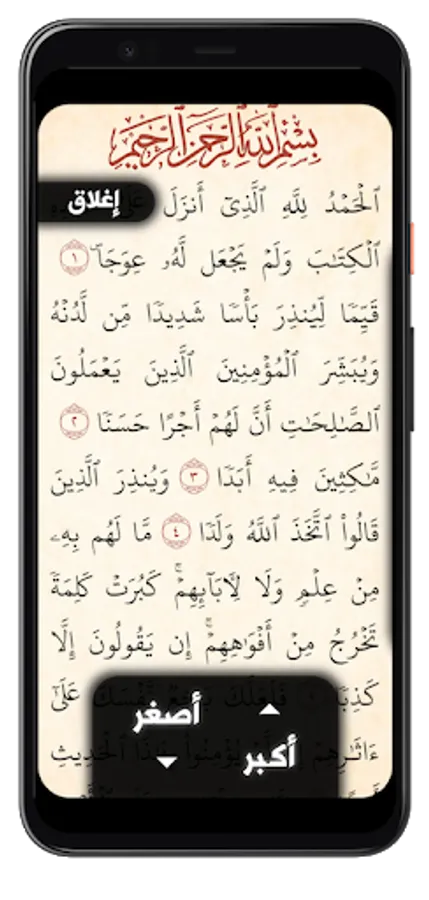 بِسْمِ ٱللَّهِ ٱلرَّحْمَٰنِ ٱلرَّحِيمِ
ٱلْحَمْدُ لِلَّهِ ٱلَّذِىٓ أَنزَلَ عَلَىٰ
إغلاق
ٱلْكِتَٰبَ وَلَمْ يَجْعَل لَّهُۥ عِوَجَاۜ ١
قَيِّمًا لِّيُنذِرَ بَأْسًا شَدِيدًا مِّن لَّدُنْهُ
وَيُبَشِّرَ ٱلْمُؤْمِنِينَ ٱلَّذِينَ يَعْمَلُونَ
ٱلصَّٰلِحَٰتِ أَنَّ لَهُمْ أَجْرًا حَسَنًا ٢
مَّٰكِثِينَ فِيهِ أَبَدًا ٣ وَيُنذِرَ ٱلَّذِينَ
قَالُوا۟ ٱتَّخَذَ ٱللَّهُ وَلَدًا ٤ مَّا لَهُم بِهِۦ
مِنْ عِلْمٍ وَلَا لِءَابَآئِهِمْ ۚ كَبُرَتْ كَلِمَةً
تَخْرُجُ مِنْ أَفْوَٰهِهِمْ ۚ إِن يَقُولُونَ إِلَّا
كَذِبًا فَلَعَلَّكَ نَّفْسَكَ عَلَىٰٓ
ءَاثَٰرِهِمْ يُؤْمِنُوا۟ بِهَٰذَا ٱلْحَدِيثِ
أصغر
أكبر